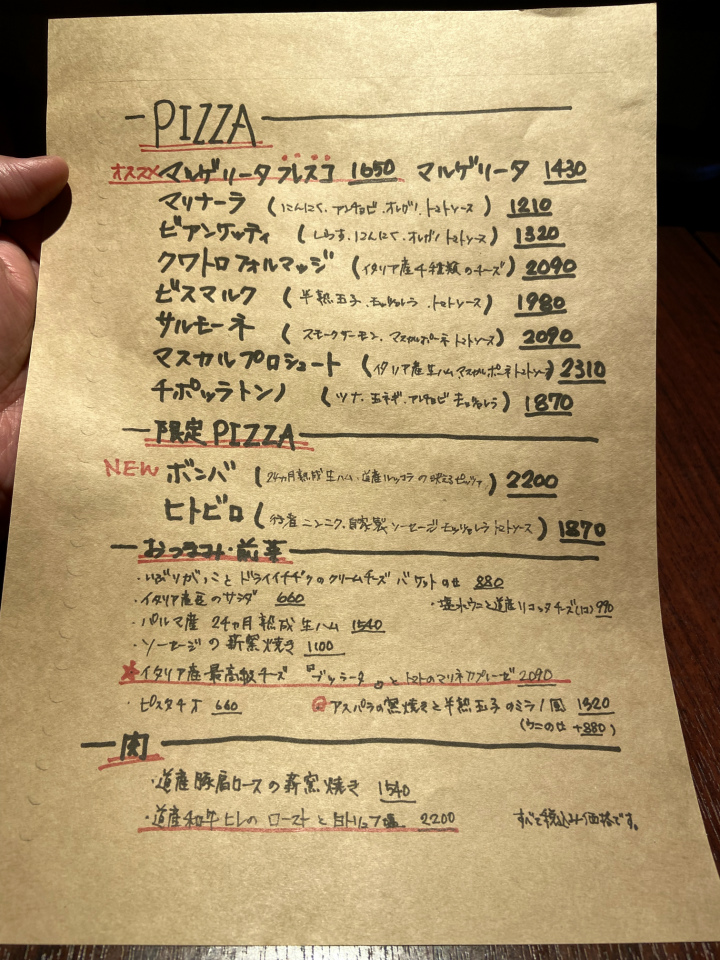 PIZZA
オススメ マルゲリータ フレスコ 1650 マルゲリータ 1430
マリナーラ (にんにく.アンチョビ.オレガノ.トマトソース) 1210
ビアンケッティ (しらす.にんにく.オレガノ トマトソース) 1320
クワトロフォルマッジ (イタリア産4種類のチーズ) 2090
ビスマルク (半熟玉子.モッツァレラ.トマトソース) 1980
サルモーネ (スモークサーモン.マスカルポーネ トマトソース) 2090
マスカルプロシュート (イタリア産生ハム マスカルポーネ トマトソース) 2310
チポッラトンノ (ツナ.玉ネギ.アンチョビ モッツァレラ) 1870
限定PIZZA
NEW ボンバ (24ヵ月熟成生ハム.道産ルッコラの 映えるピッツァ) 2200
ヒトビロ (行者ニンニク.自家製ソーセージ モッツァレラ トマトソース) 1870
おつまみ・前菜
・いぶりがっことドライイチヂクのクリームチーズ バゲットのせ 880
・イタリア産豆のサラダ 660 ・塩水ウニと道産リコッタチーズ(1コ) 990
・パルマ産 24ヵ月熟成生ハム 1540
・ソーセージの薪窯焼き 1100
・イタリア産最高級チーズ 『ブッラータ』とトマトのマリネカプレーゼ 2090
・ピスタチオ 660 アスパラの窯焼きと半熟玉子のミラノ風 1320
(ウニのせ +880)
肉
・道産豚肩ロースの薪窯焼き 1540
・道産和牛ヒレのローストと白トリュフ塩 2200 すべて税込み価格です。